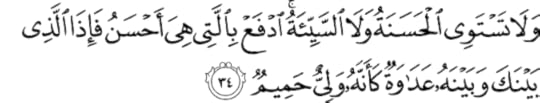 وَلَا تَسْتَوِى ٱلْحَسَنَةُ وَلَا ٱلسَّيِّئَةُ ۚ ٱدْفَعْ بِٱلَّتِى هِىَ أَحْسَنُ فَإِذَا ٱلَّذِى
بَيْنَكَ وَبَيْنَهُۥ عَدَٰوَةٌ كَأَنَّهُۥ وَلِىٌّ حَمِيمٌ ﴿٣٤﴾